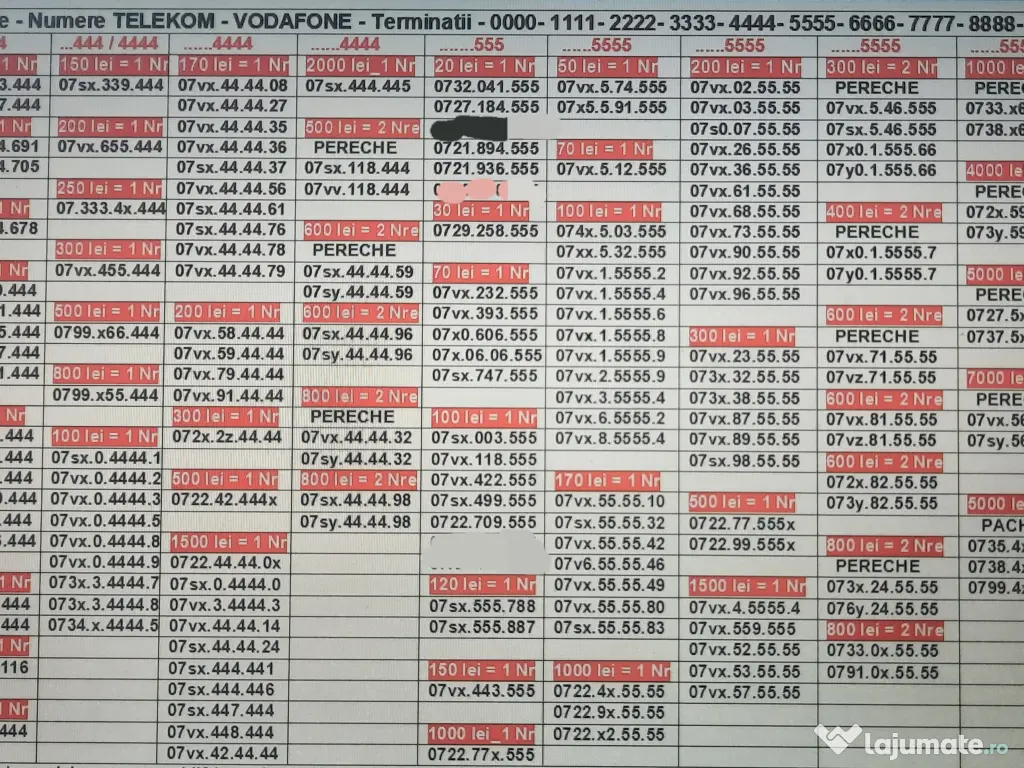 e - Numere TELEKOM - VODAFONE - Terminatii - 0000- 1111- 2222- 3333- 4444- 5555- 6666- 7777- 8888-
4 ...444 / 4444 ......4444 ......4444 .......555 ......5555 ......5555 ......5555 ......555
1 Nr 150 lei = 1 Nr 170 lei = 1 Nr 2000 lei_1 Nr 20 lei = 1 Nr 50 lei = 1 Nr 200 lei = 1 Nr 300 lei = 2 Nr 1000 lei
3.444 07sx.339.444 07vx.44.44.08 07sx.444.445 0732.041.555 07vx.5.74.555 07vx.02.55.55 PERECHE PEREC
7.444 07vx.44.44.27 0727.184.555 07x5.5.91.555 07vx.03.55.55 07vx.5.46.555 0733.x6
1 Nr 200 lei = 1 Nr 07vx.44.44.35 500 lei = 2 Nre 07s0.07.55.55 07sx.5.46.555 0738.x6
4.691 07vx.655.444 07vx.44.44.36 PERECHE 0721.894.555 70 lei = 1 Nr 07vx.26.55.55 07x0.1.555.66
4.705 07sx.44.44.37 07sx.118.444 0721.936.555 07vx.5.12.555 07vx.36.55.55 07y0.1.555.66 4000 lei
250 lei = 1 Nr 07vx.44.44.56 07vv.118.444 07vx.61.55.55 PEREC
1 Nr 07.333.4x.444 07sx.44.44.61 30 lei = 1 Nr 100 lei = 1 Nr 07vx.68.55.55 400 lei = 2 Nre 072x.59
4.678 07sx.44.44.76 600 lei = 2 Nre 0729.258.555 074x.5.03.555 07vx.73.55.55 PERECHE 073y.59
300 lei = 1 Nr 07vx.44.44.78 PERECHE 07xx.5.32.555 07vx.90.55.55 07x0.1.5555.7
1 Nr 07vx.455.444 07vx.44.44.79 07sx.44.44.59 70 lei = 1 Nr 07vx.1.5555.2 07vx.92.55.55 07y0.1.5555.7 5000 lei
0.444 07sy.44.44.59 07vx.232.555 07vx.1.5555.4 07vx.96.55.55 PEREC
1.444 500 lei = 1 Nr 200 lei = 1 Nr 600 lei = 2 Nre 07vx.393.555 07vx.1.5555.6 600 lei = 2 Nre 0727.5x
5.444 0799.x66.444 07vx.58.44.44 07sx.44.44.96 07x0.606.555 07vx.1.5555.8 300 lei = 1 Nr PERECHE 0737.5x
7.444 07vx.59.44.44 07sy.44.44.96 07x.06.06.555 07vx.1.5555.9 07vx.23.55.55 07vx.71.55.55
1.444 800 lei = 1 Nr 07vx.79.44.44 07sx.747.555 07vx.2.5555.9 073x.32.55.55 07vz.71.55.55 7000 lei
0799.x55.444 07vx.91.44.44 800 lei = 2 Nre 07vx.3.5555.4 073x.38.55.55 600 lei = 2 Nre PEREC
Nr 300 lei = 1 Nr PERECHE 100 lei = 1 Nr 07vx.6.5555.2 07vx.87.55.55 07vx.81.55.55 07vx.56
.444 100 lei = 1 Nr 072x.2z.44.44 07vx.44.44.32 07sx.003.555 07vx.8.5555.4 07vx.89.55.55 07vz.81.55.55 07sy.56
.444 07sx.0.4444.1 07sy.44.44.32 07vx.118.555 07sx.98.55.55 600 lei = 2 Nre
.444 07vx.0.4444.2 500 lei = 1 Nr 800 lei = 2 Nre 07vx.422.555 170 lei = 1 Nr 072x.82.55.55
0.444 07vx.0.4444.3 0722.42.444x 07sx.44.44.98 07sx.499.555 07vx.55.55.10 500 lei = 1 Nr 073y.82.55.55 5000 lei
.444 07vx.0.4444.5 07sy.44.44.98 0722.709.555 07sx.55.55.32 0722.77.555x PACH
6.444 07vx.0.4444.8 1500 lei = 1 Nr 07vx.55.55.42 0722.99.555x 800 lei = 2 Nre 0735.4x
07vx.0.4444.9 0722.44.44.0x 07v6.55.55.46 PERECHE 0738.4x
1 Nr 073x.3.4444.7 07sx.0.4444.0 120 lei = 1 Nr 07vx.55.55.49 1500 lei = 1 Nr 073x.24.55.55 0799.4x
.444 073x.3.4444.8 07vx.3.4444.3 07sx.555.788 07vx.55.55.80 07vx.4.5555.4 076y.24.55.55
.444 0734.x.4444.5 07vx.44.44.14 07sx.555.887 07sx.55.55.83 07vx.559.555 800 lei = 2 Nre
1 Nr 07sx.44.44.24 07vx.52.55.55 0733.0x.55.55
116 07sx.444.441 150 lei = 1 Nr 1000 lei = 1 Nr 07vx.53.55.55 0791.0x.55.55
07sx.444.446 07vx.443.555 0722.4x.55.55 07vx.57.55.55
1 Nr 07sx.447.444 0722.9x.55.55
.444 07vx.448.444 1000 lei_1 Nr 0722.x2.55.55
07vx.42.44.44 0722.77x.555
lajumate.ro